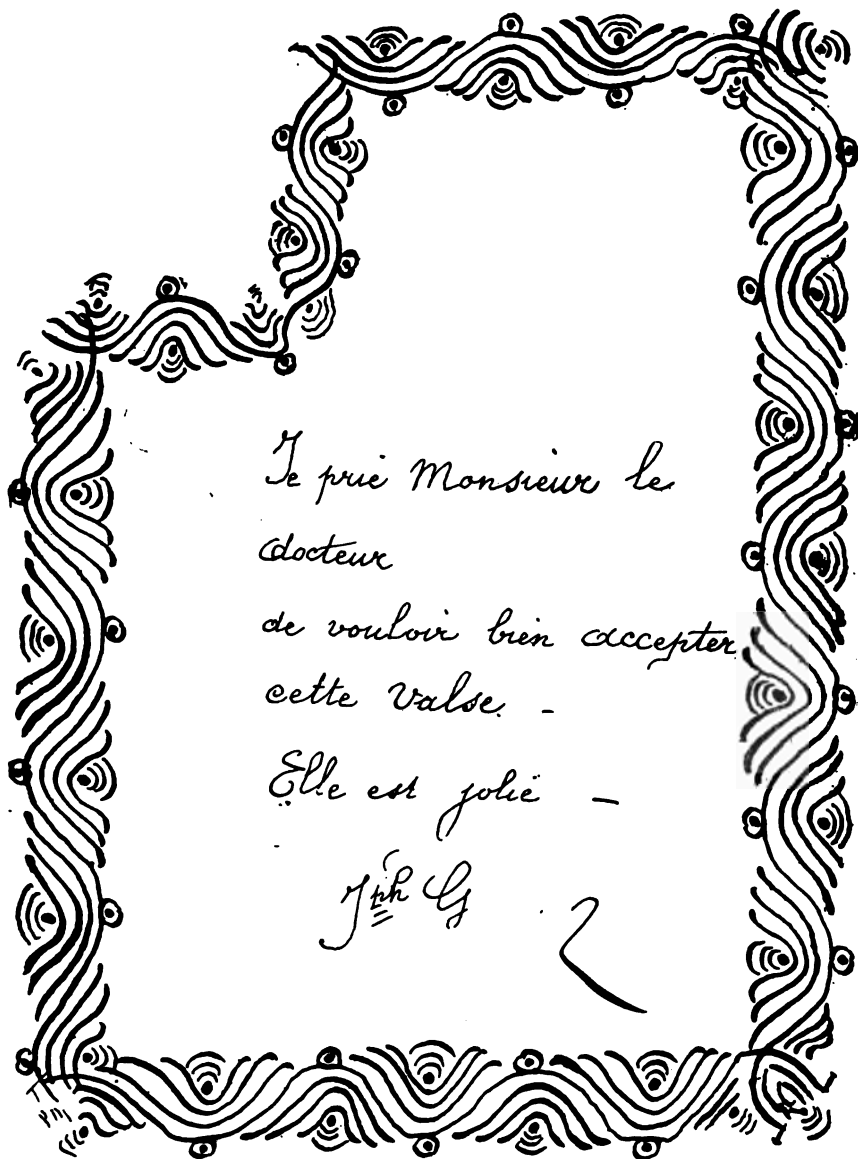 Je prie Monsieur le
docteur
de vouloir bien accepter
cette valse. –
Elle est jolie –
Jph G